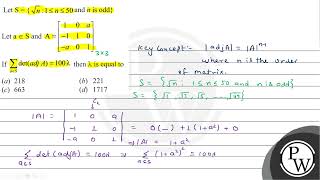 Let S = {√n : 1 ≤ n ≤ 50 and n is odd}
Let a ∈ S and A = [1 0 a
-1 1 0
-a 0 1] 3×3
If ∑ a∈S det(adj A) = 100λ then λ is equal to
(a) 218 (b) 221
(c) 663 (d) 1717
Key Concept:- |adjA| = |A|ⁿ⁻¹
where n is the order
of matrix.
S = {√n | 1 ≤ n ≤ 50 and n is odd}
S = {√1, √3, √5, ..., √49}
C₂
|A| = | 1 0 a
-1 1 0
-a 0 1 | = 0(-)+1(1+a²)+0
⇒|A| = 1+a²
∑ a∈S det(adjA) = 100λ ⇒ ∑ a∈S (1+a²)² = 100λ
PW